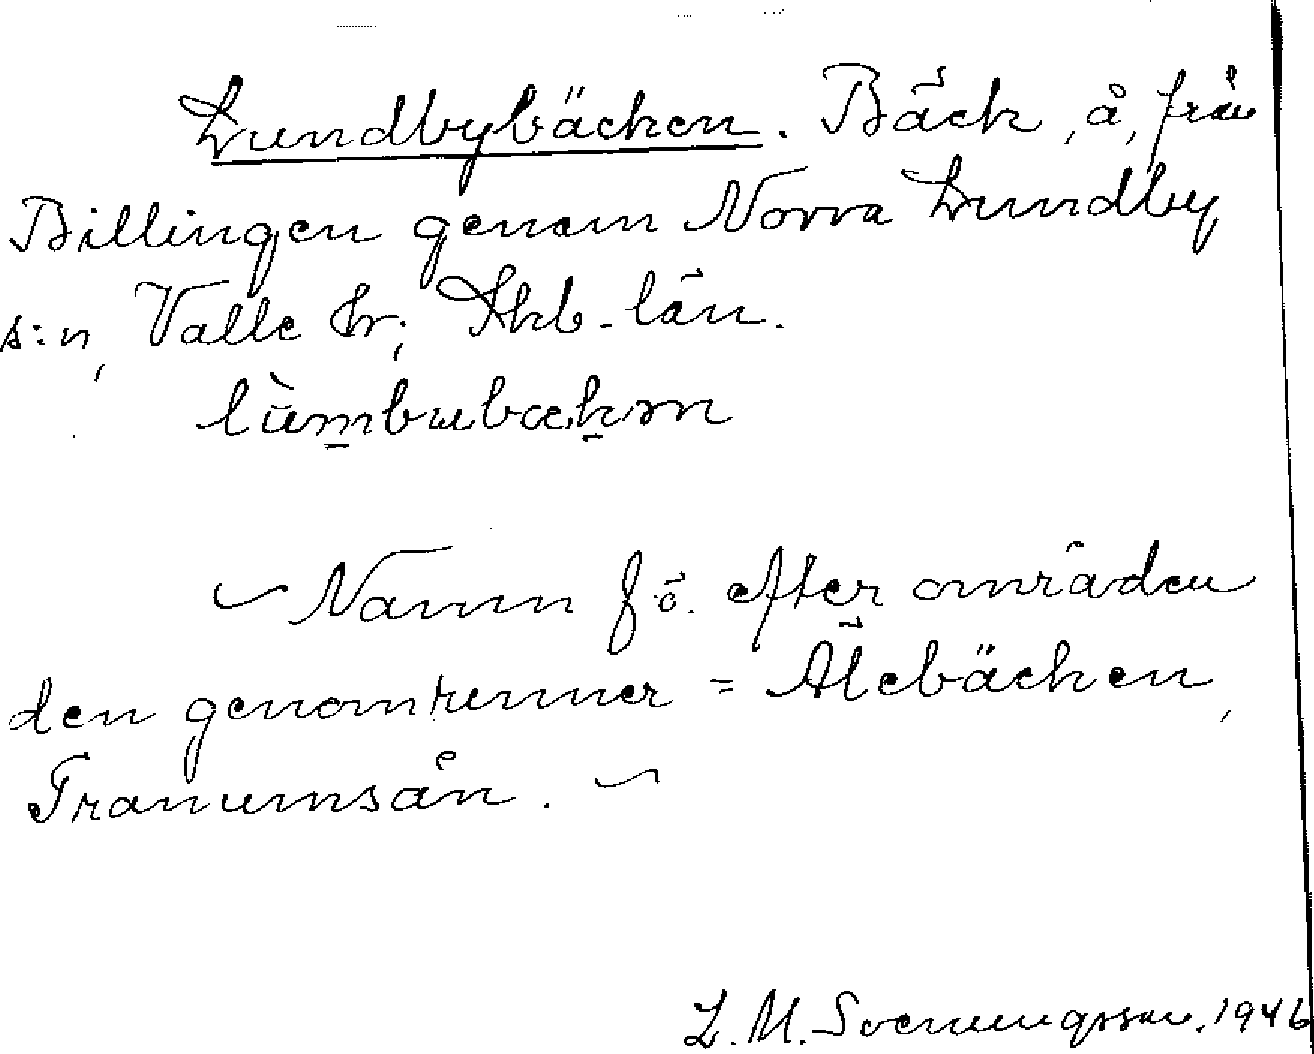 Lundbybäcken. Bäck, å, från
Billingen genom Norra Lundby
s:n, Valle hr; Skb-län.
Namn f.ö. efter områden
den genomrenner = Ålebäcken,
Tranumsån.
L. M. Svenungsson. 1946